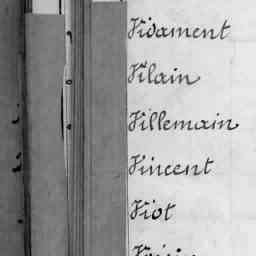 Vidament
Vilain
Villemain
Vincent
Viot
Voisin